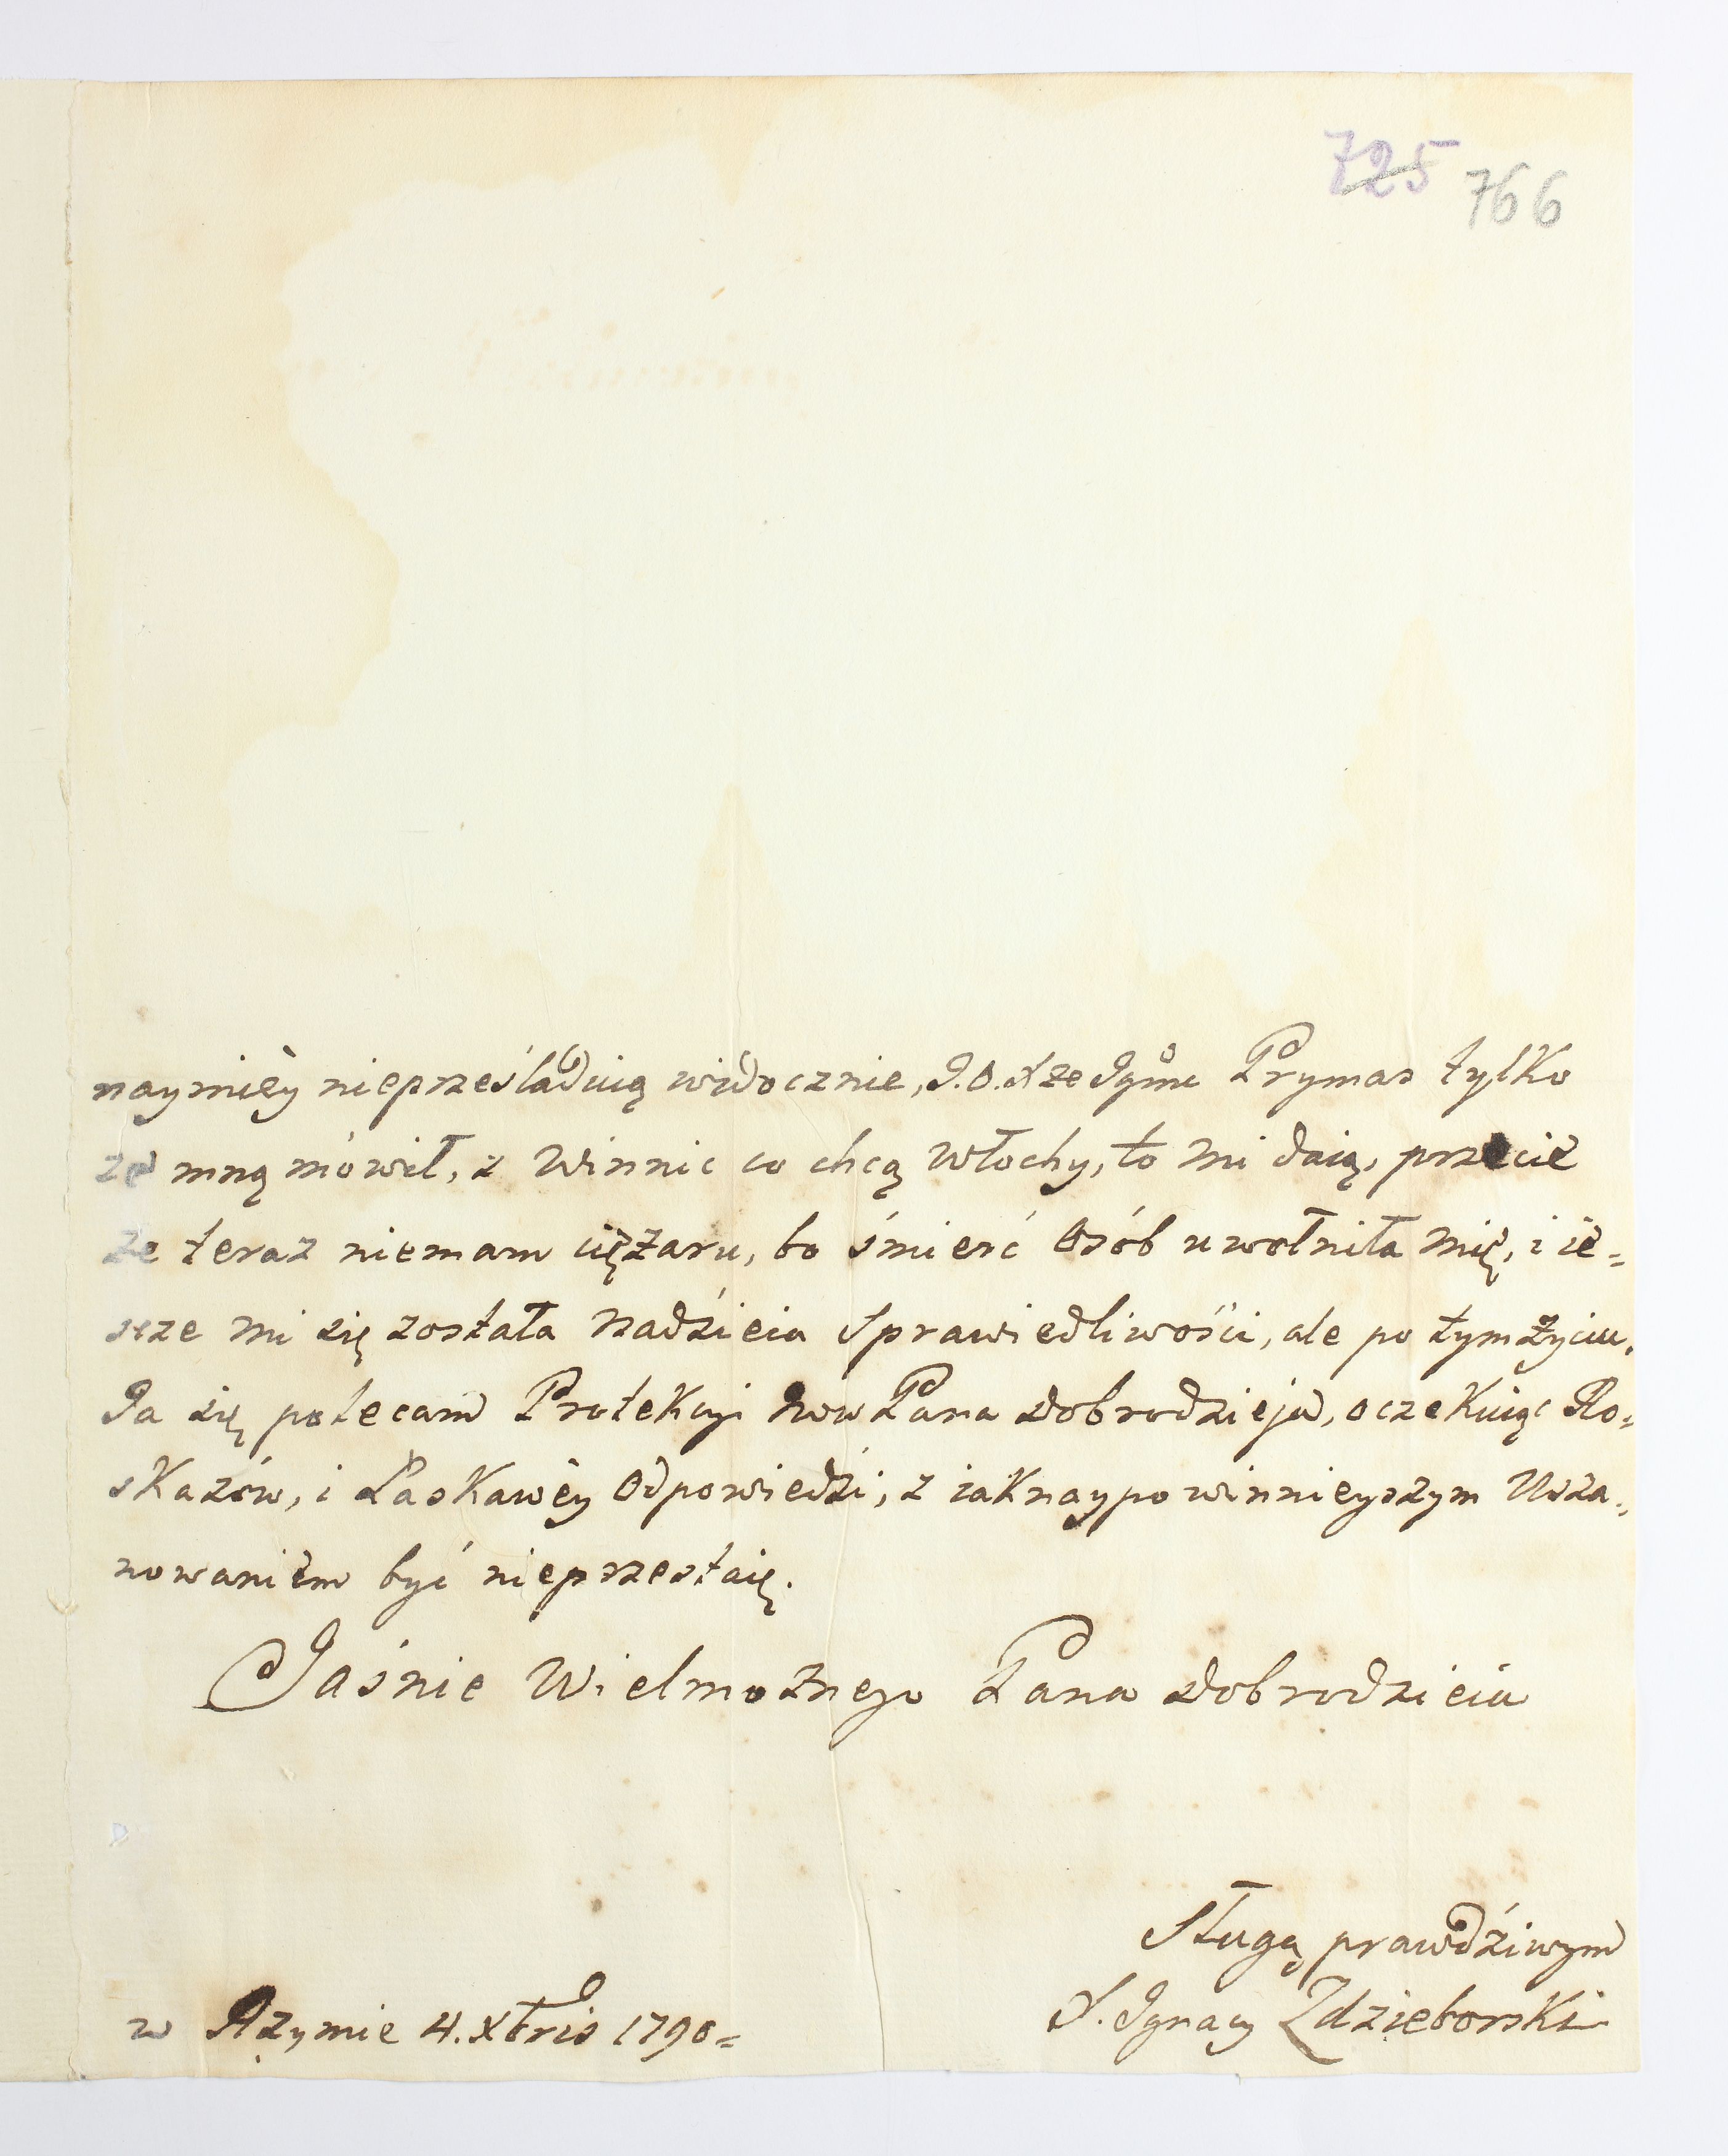 725 766
naymiėy nieprześladuią widocznie, J.O. Xze Jgmc Prymas tylko
ze mną mówił, z Winnic co chcą Włochy, to mi daią, przecie
że teraz niemam ciężaru, bo śmierć Osób uwolniła Mię, i ie=
scze mi się została Nadzieia Sprawiedliwości, ale po tym życiu.
Ja się polecam Protekcyi Pana Dobrodzieja, oczekuiąc Ro=
skazów, i Łaskawėy Odpowiedzi, z iaknaypowinnieyszym Usza=
nowaniem być nieprzestaię.
Jaśnie Wielmożnego Pana Dobrodzieia
Sługą prawdziwym
X. Ignacy Zdzieborski
w Rzymie 4. Xbris 1790=